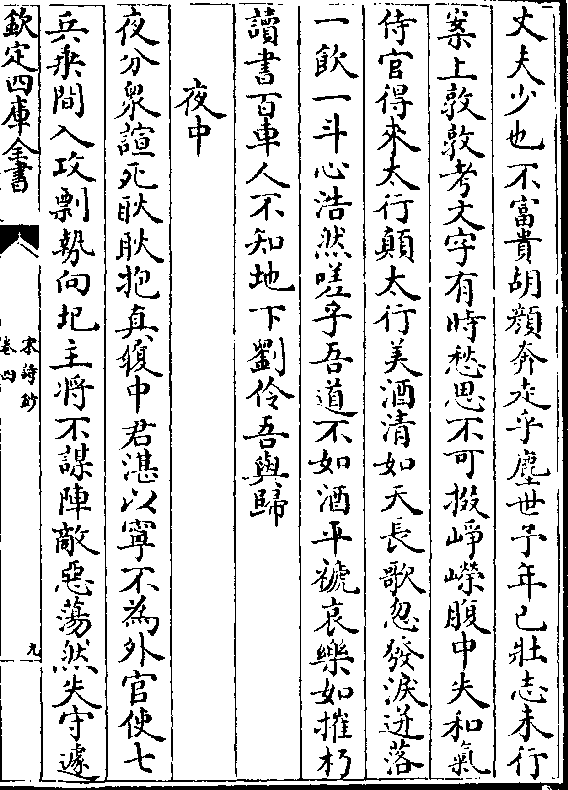 丈夫少也不富貴胡顔奔走乎塵世予年已壯志未行
案上敦敦考文字有時愁思不可掇崢嶸腹中失和氣
侍官得來太行顛太行美酒清如天長歌忽發淚迸落
一飲一斗心浩然嗟乎吾道不如酒平褫哀樂如摧朽
讀書百車人不知地下劉伶吾與歸
夜中
夜分衆諠死耿耿抱真復中君湛以寧不為外官使七
兵乘間入攻剽勢向圯主将不謀陣敵惡蕩然失守遽
欽定四庫全書
宋詩鈔
卷四
九